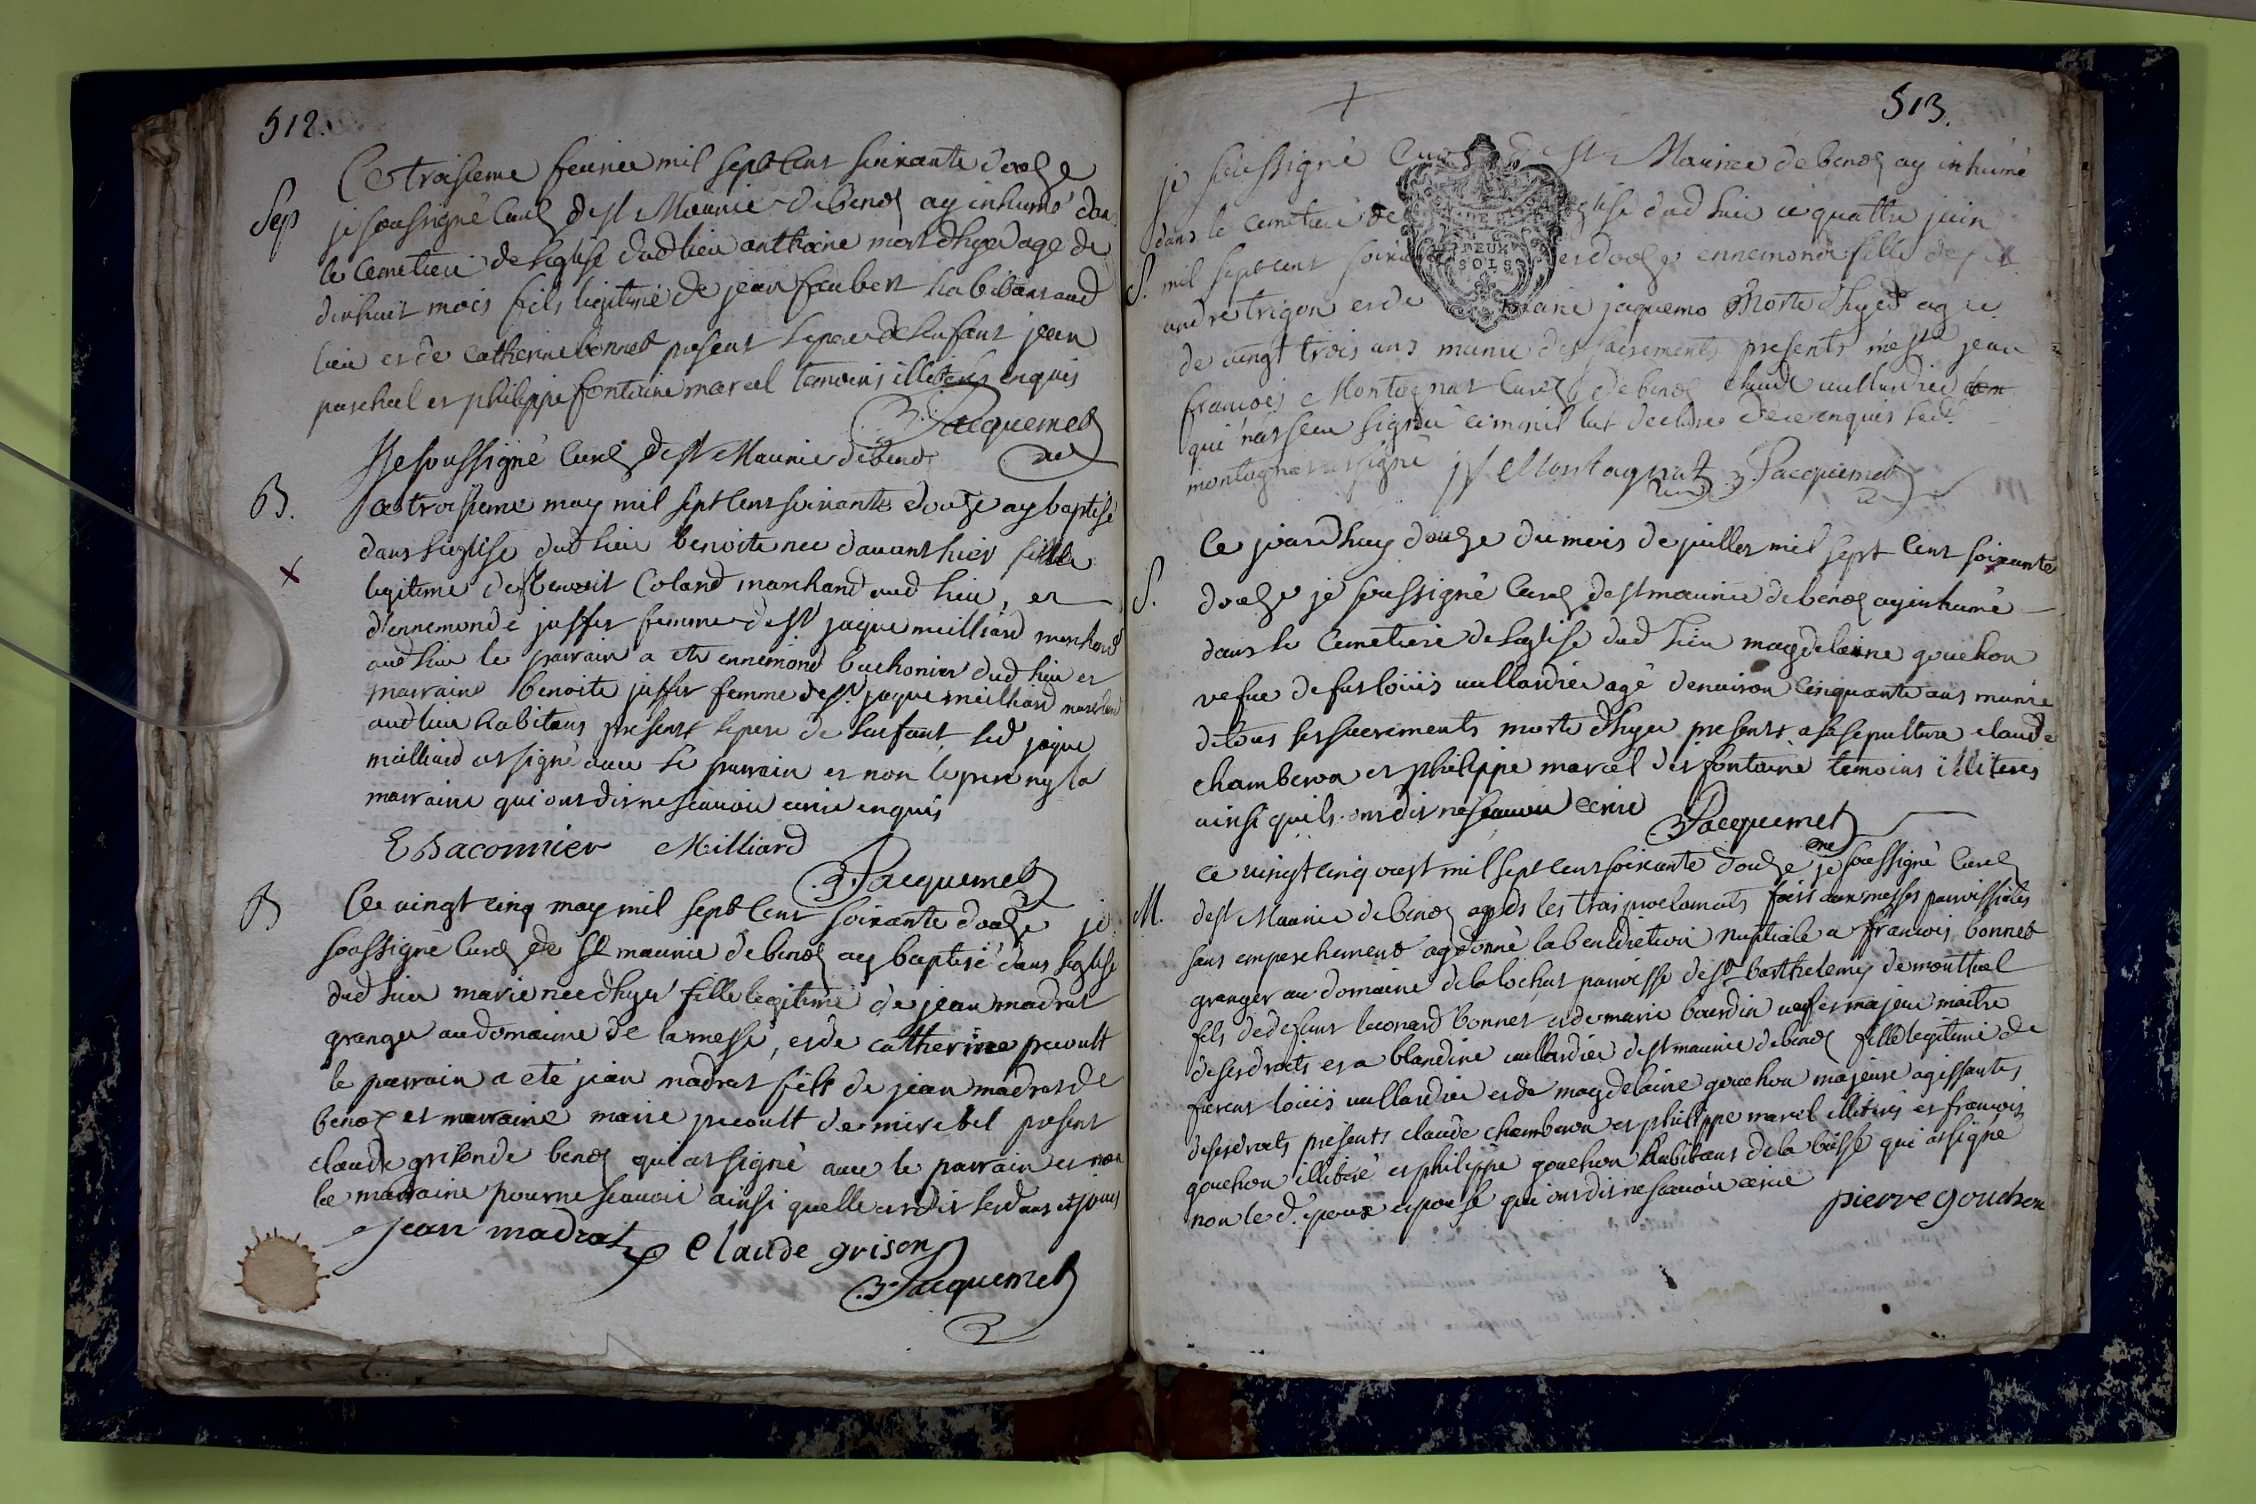 512.
Ce troisieme feurier mil sept cent soixante douze
Sep je soussigné Curé de st Maurice de benos ay inhumé dans
le cemetiere de l'eglise dud lieu anthoine mort d'hyer age de
dixhuit mois fils legitime de jean faubert habitant aud
lieu et de Catherine bonnet present le pere de l'enfant jean
paschal et philippe fontaine marcel temoins illiteres enquis
B. Jacquemet
curé
Je soussigné Curé de st Maurice de benos
B. ce troisieme may mil sept cent soixante douze ay baptisé
dans l'eglise dud lieu benoite nee dauant hier fille
legitime de benoit Coland marchand aud lieu, et
d'ennemonde juffet femme de st jaque meilliard marchand
aud lieu le parrain a ete ennemond bachonier dud lieu et
marraine benoite juffet femme de st jaque meilliard marchand
aud lieu habitans presents le pere de l'enfant led jaque
milliard at signé auec le parrain et non le pere ny la
marraine qui ont dit ne scauoir ecrire enquis
E Baconnier Milliard
B. Jacquemet
B Ce vingt cinq may mil sept cent soixante douze je
soussigné Curé de st maurice de benos ay baptisé dans l'eglise
dud lieu marie nee d'hyer fille legitime de jean madrat
granger au domaine de la messe, et de catherine pecoult
le parrain a ete jean madrat fils de jean madrat de
benos et marraine marie pecoult de miribel present
claude grison de benos qui at signé auec le parrain et non
la marraine pour ne scauoir ainsi quelle at dit lesd ans et jours
jean madrat claude grison
B. Jacquemet
513.
je soussigné Curé de st Maurice de benos ay inhumé
dans le cemetiere de l'eglise dud lieu ce quattre juin
S. mil sept cent soixante et douze ennemonde fille de
andre trigon et de marie jaquemo morte d'hyer agee
de vingt trois ans munie des sacrements presents me jean
francois Montagnat Curé de benos claude uullardier
qui n'at sceu signer ainsi lat declare de ce enquis led
montagnat at signé jf Montagnat B. Jacquemet
Ce jourd'huy douze du mois de juillet mil sept cent soixante
S. douze je soussigné Curé de st maurice de benos ay inhumé
dans le cemetiere de l'eglise dud lieu magdelaine gouchon
vefue de fut louis uullardier agé d'enuiron cinquante ans munie
de tous les sacrements morte d'hyer presents a sa sepulture claude
chamberon et philippe marcel dit fontaine temoins illiteres
ainsi quils ont dit ne scauoir ecrire B Jacquemet
curé
ce vingt cinq aoust mil sept cent soixante douze je soussigné Curé
M. de st Maurice de benos apres les trois proclamats fait aux messes parroissiales
sans empeschement ay donné la benediction nuptiale a francois bonnet
granger au domaine de la lochat parroisse de st barthelemy de montluel
fils de defunt leonard bonnet et de marie bourdin uef et majeur maitre
de ses droits et a blandine uullardier de st maurice de benos fille legitime de
louis uullardier et de magdelaine gouchon majeure agissante
de ses droits presents claude chamberon et philippe marcel illiteres et francois
gouchon illiteré et philippe gouchon habitans de la boisse qui at signé
non le d. epoux et pouse qui ont dit ne scauoir ecrire
pierre gouchon